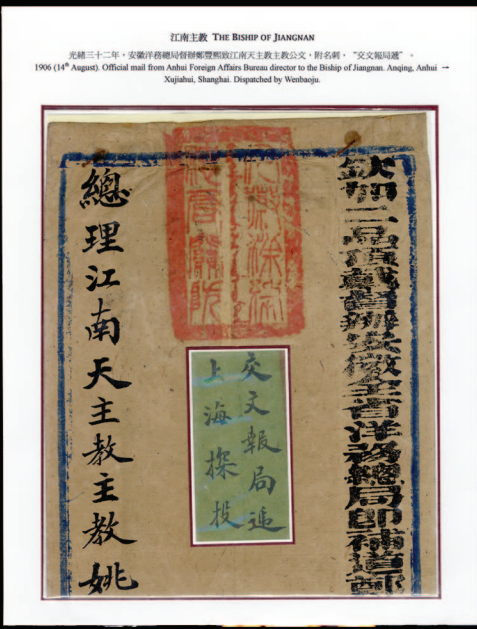 江南主教 THE BISHIP OF JIANGNAN
光緒三十二年，安徽洋務總局督辦鄭豐熙致江南天主教主教公文，附名刺，“交文報局遞”。
1906 (14th August). Official mail from Anhui Foreign Affairs Bureau director to the Biship of Jiangnan. Anqing, Anhui →
Xujiahui, Shanghai. Dispatched by Wenbaoju.
欽加二品頂戴督辦安徽全省洋務總局即補道鄭
交文報局遞
上海探投
總理江南天主教主教姚